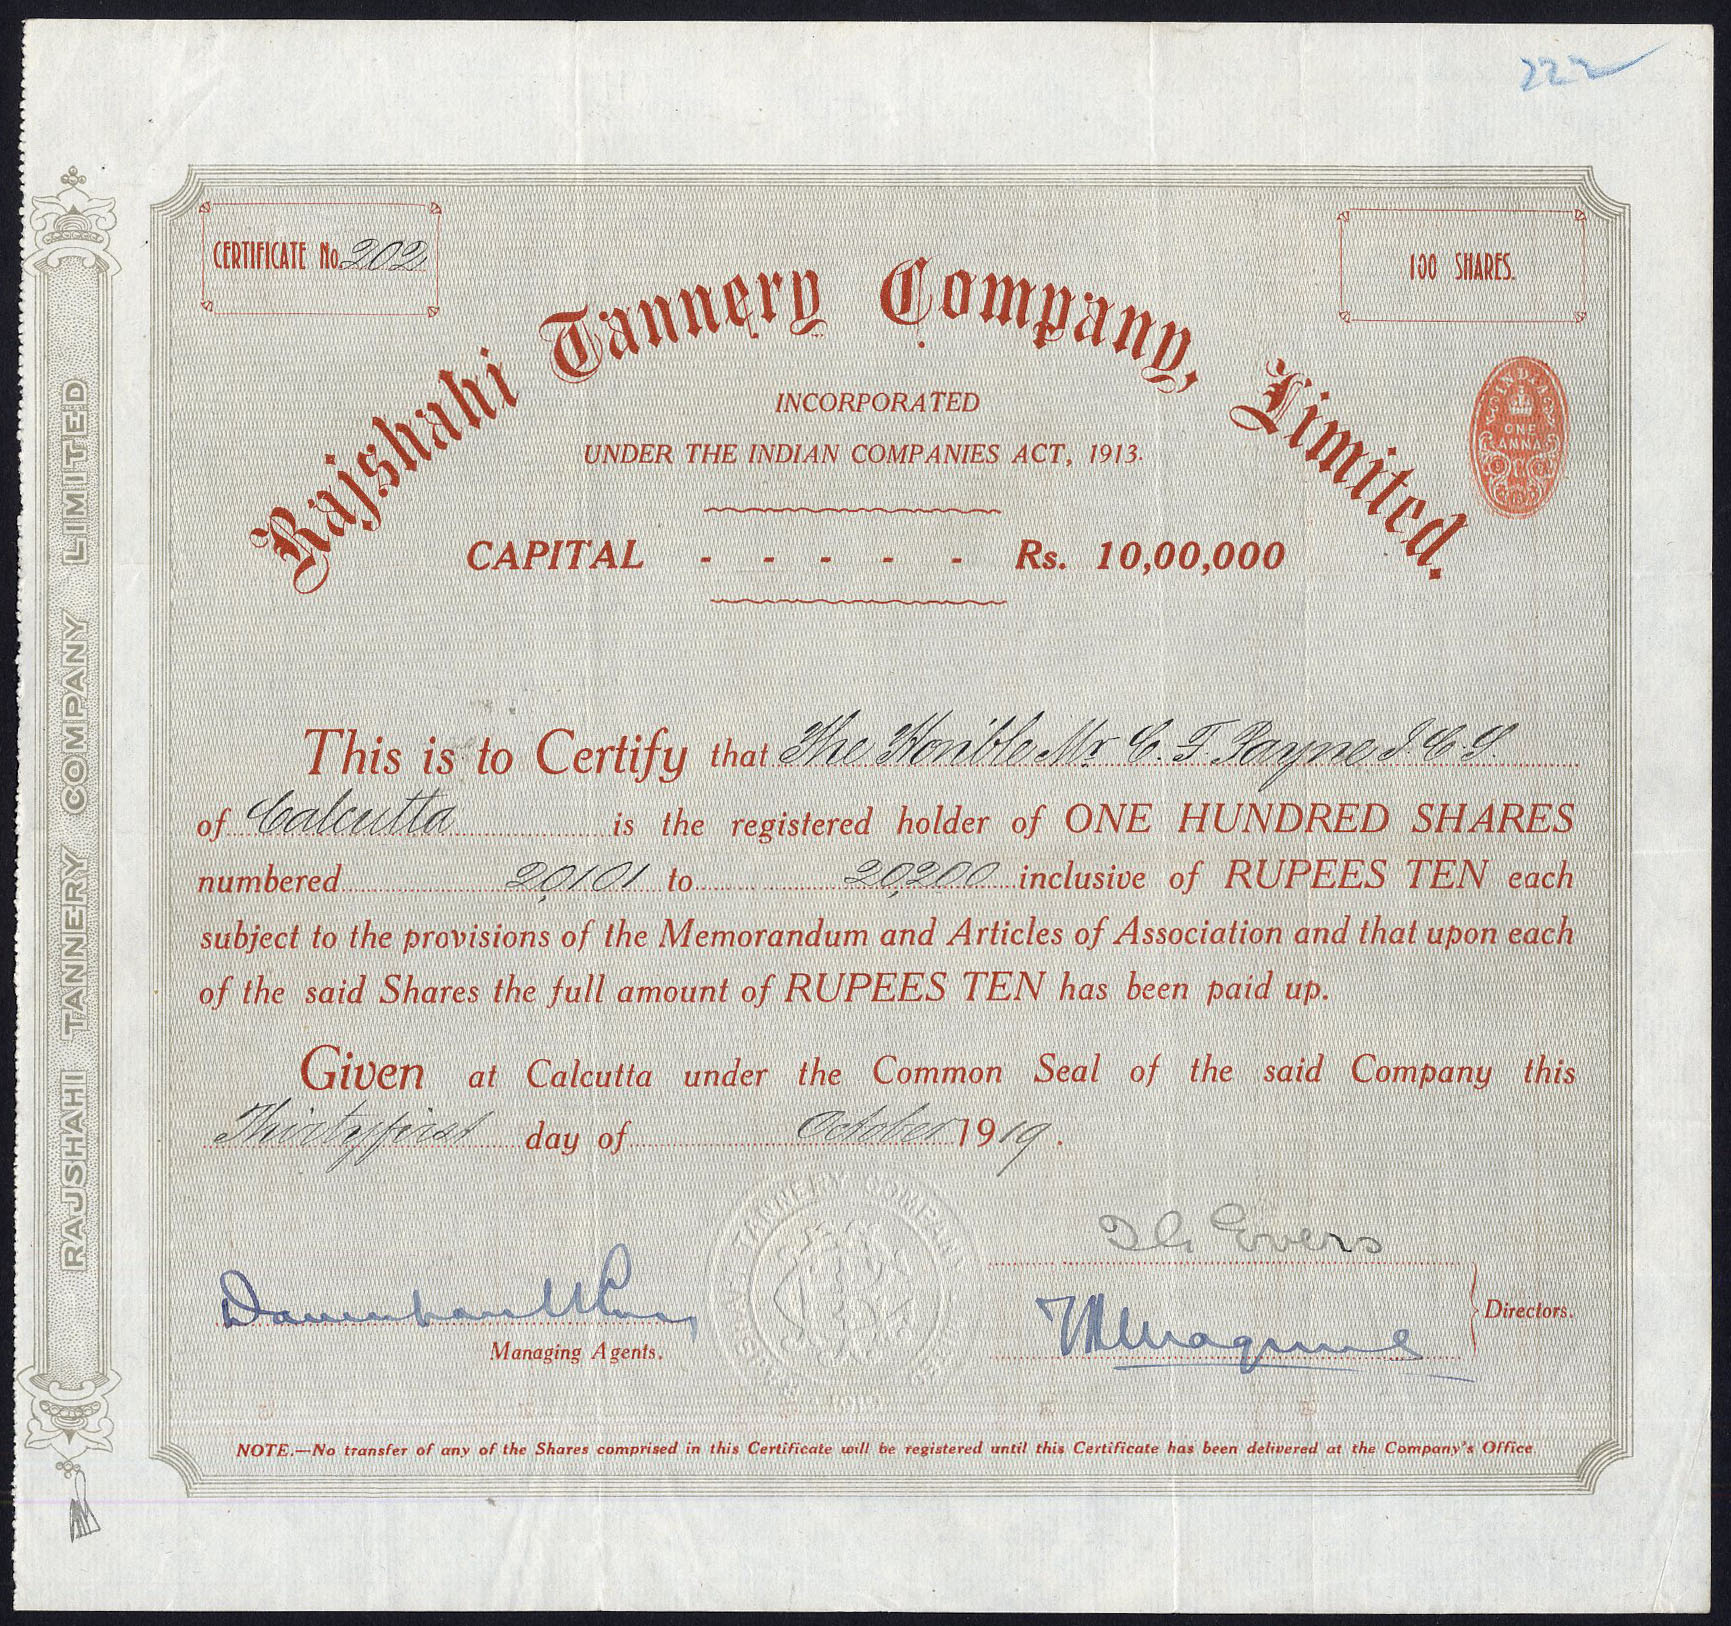 222
CERTIFICATE No. 202
100 SHARES.
Rajshahi Tannery Company, Limited.
INDIA
ONE
ANNA
INCORPORATED
UNDER THE INDIAN COMPANIES ACT, 1913.
CAPITAL - - - - - Rs. 10,00,000
This is to Certify that The Hon'ble Mr C. F. Payne I.C.S.
of Calcutta is the registered holder of ONE HUNDRED SHARES
numbered 20,101 to 20,200 inclusive of RUPEES TEN each
subject to the provisions of the Memorandum and Articles of Association and that upon each
of the said Shares the full amount of RUPEES TEN has been paid up.
Given at Calcutta under the Common Seal of the said Company this
Thirtyfirst day of October 1919.
TANNERY COMPANY
Evers
Directors.
Managing Agents.
NOTE.—No transfer of any of the Shares comprised in this Certificate will be registered until this Certificate has been delivered at the Company's Office
RAJSHAHI TANNERY COMPANY LIMITED